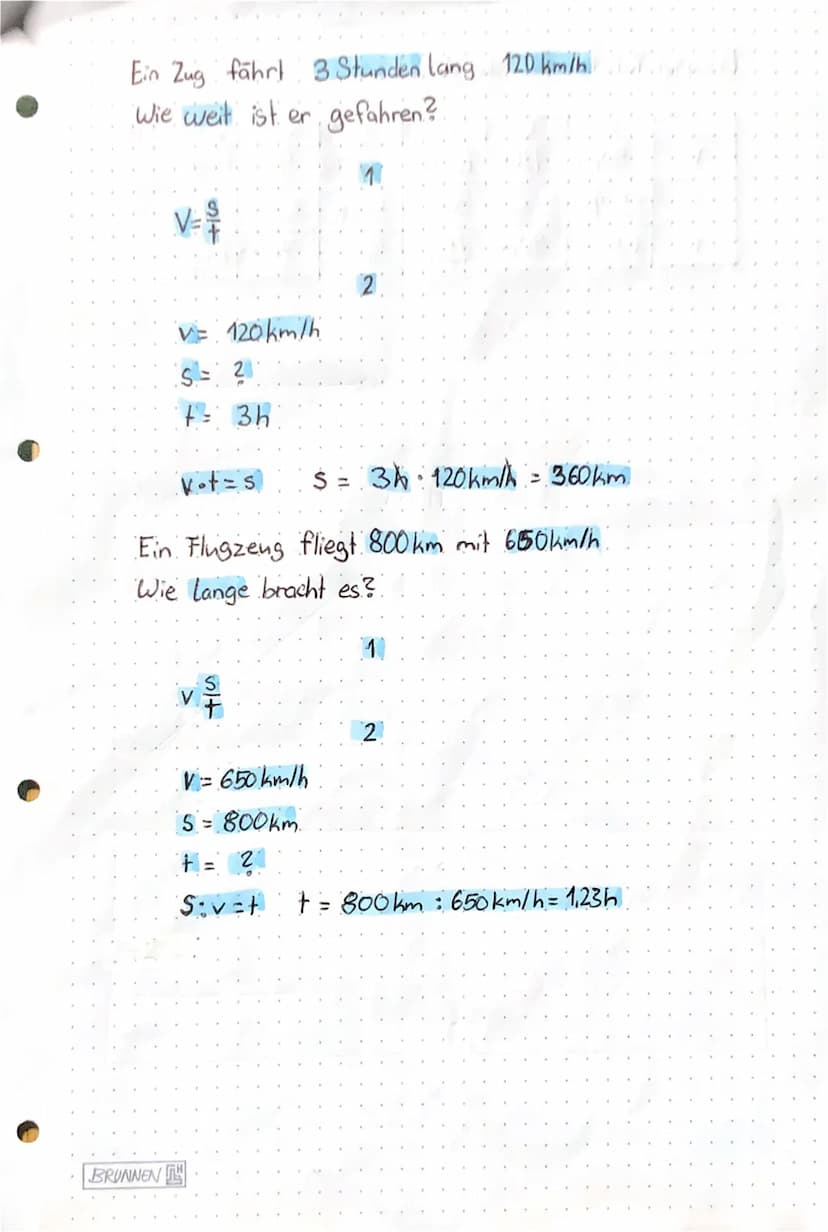 Ein Zug fährt 3 Stunden lang 120 km/h
Wie weit ist er gefahren?
1
V= s/t
2
v= 120 km/h
s= ?
t= 3h
v•t=s s = 3h • 120km/h = 360km
Ein Flugzeug fliegt 800 km mit 650km/h
Wie lange bracht es?
1
v s/t
2
v= 650 km/h
s = 800km
t = ?
s:v=t t = 800 km : 650 km/h = 1,23h
BRUNNEN